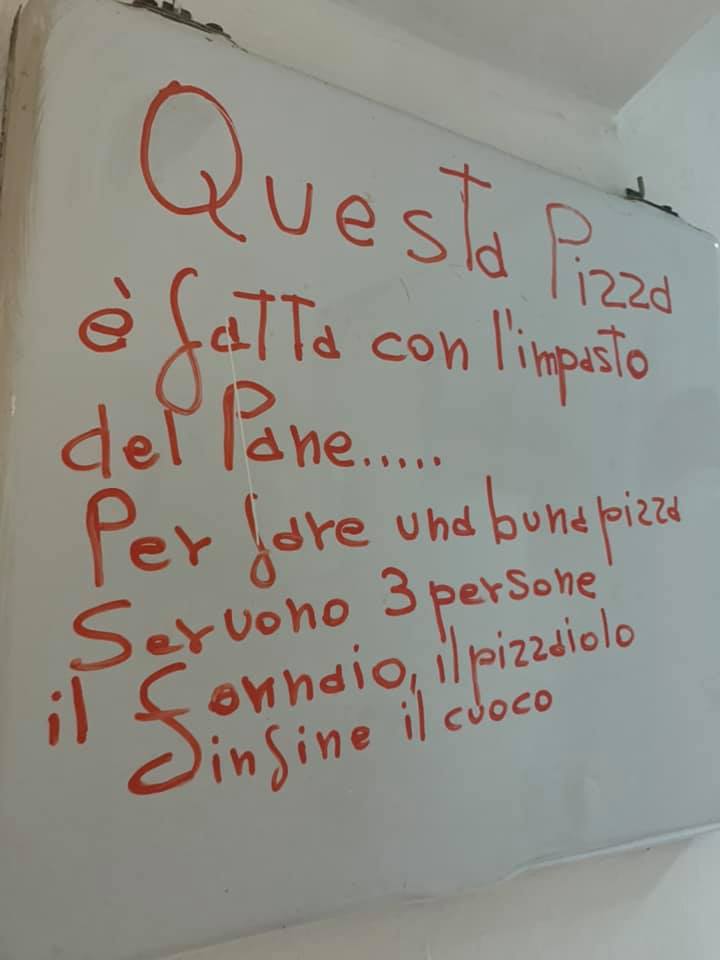 Questa Pizza
è fatta con l'impasto
del Pane.....
Per fare una buna pizza
Servono 3 persone
il fonnaio, il pizzaiolo
infine il cuoco